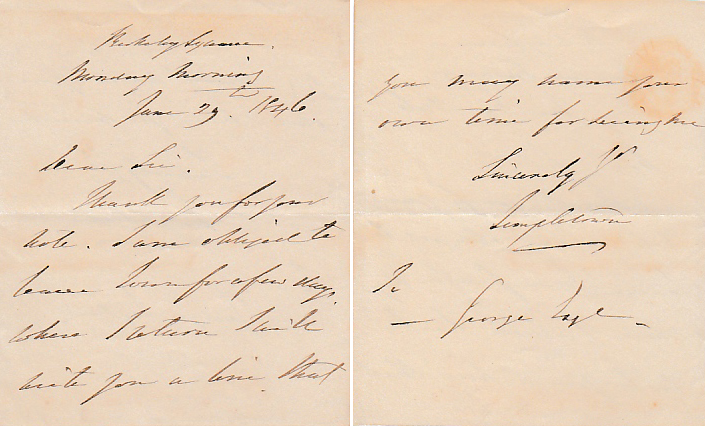 Berkeley Square.
Monday Morning
June 29th. 1846.
Dear Sir.
Thank you for your
note. I am obliged to
leave Town for a few days,
when I return I will
write you a line, that
you may name your
own time for seeing me
Sincerely Yrs
Templetown
To
— George